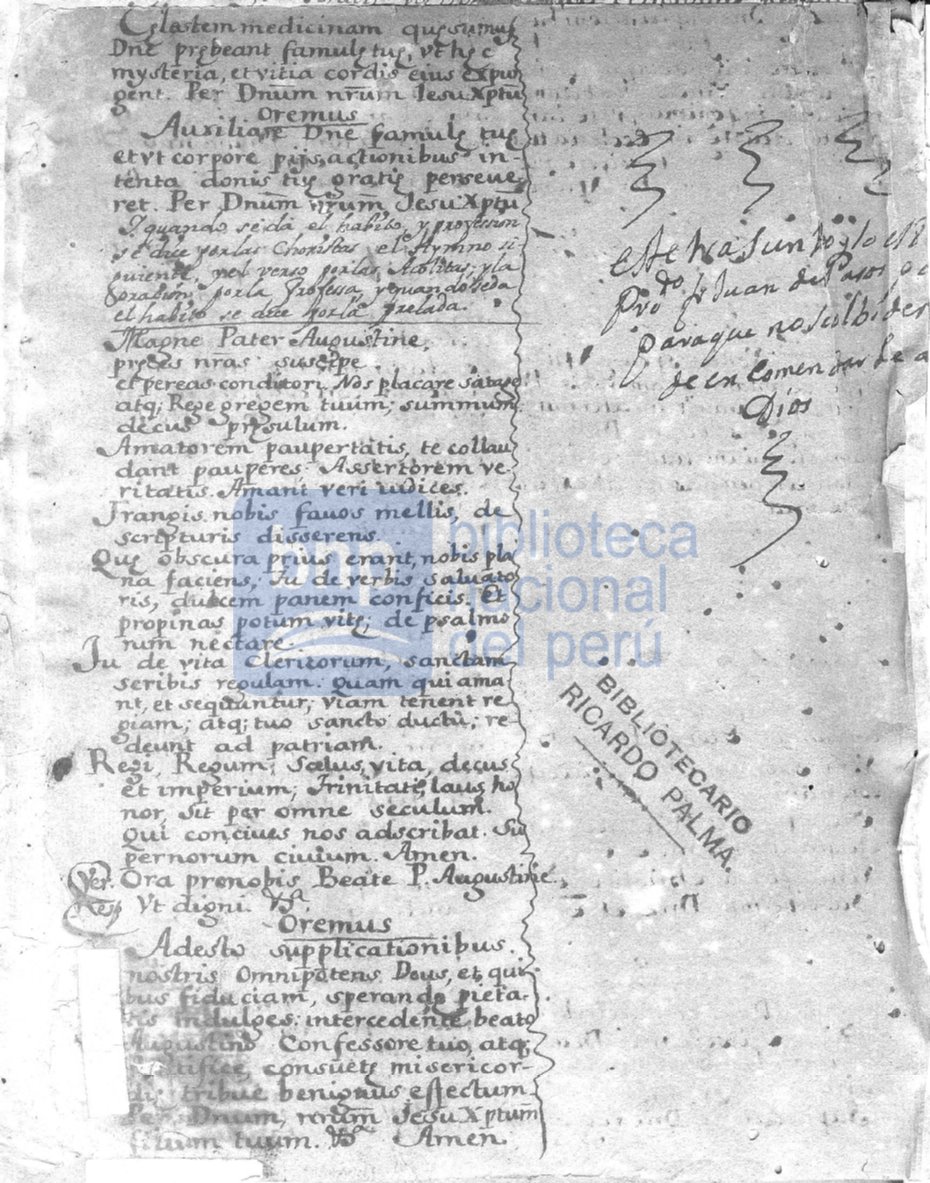 Celastem medicinam quęsumus
Dnē prębeant famulę tuę, vt hęc
mysteria, et vitia cordis eius expur
gent. Per Dnūm nrūm Iesu Xptū
Oremus
Auxiliare Dnē famulę tuę
et vt corpore pijs actionibus in-
tenta donis tuę gratię perseve-
ret. Per Dnūm nrūm Iesu Xptū
quando se da el habito, y profession
se dice por las Choristas el Hymno si-
guiente, y el verso por las Acolitas; y la
oración por la Professa, y quando se da
el habito se dice por la prelada.
Magne Pater Augustine,
preces nrās suscipe.
et per eas conditori, Nos placare satage
atq; Rege gregem tuum; summum
decus pręsulum.
Amatorem paupertatis, te collau
dant pauperes Assertorem ve-
ritatis. Amant veri iudices.
Frangis nobis favos mellis, de
scripturis disserens.
Quę obscura prius erant, nobis pla
na faciens, Tu de verbis salvato
ris, dulcem panem conficis. Et
propinas potum vitę; de psalmo
rum nectare.
Tu de vita Clericorum, sanctam
scribis regulam. Quam qui ama
nt, et sequuntur; viam tenent re
giam; atq; tuo sancto ductu; re-
deunt ad patriam.
Regi, Regum; Salus, vita, decus
et imperium; Trinitati, laus, ho
nor, Sit per omne seculum.
Qui concives nos adscribat. Su
pernorum civium. Amen.
Ver. Ora pronobis Beate P. Augustine.
Resp. Vt digni.
Oremus
Adesto supplicationibus
nostris Omnipotens Deus, et qui
bus fiduciam, sperandę pieta-
tis indulges: intercedente beato
Augustino Confessore tuo, atq;
Pontifice, consuetę misericor-
dię tribue benignus effectum
Per Dnum, nrūm Iesu Xptūm
filium tuum. Amen.
este has un
Prodo fr Juan de
para que no se olbide
de en comendarle a
Dios
biblioteca
nacional
del perú
bnp
BIBLIOTECARIO
RICARDO PALMA.